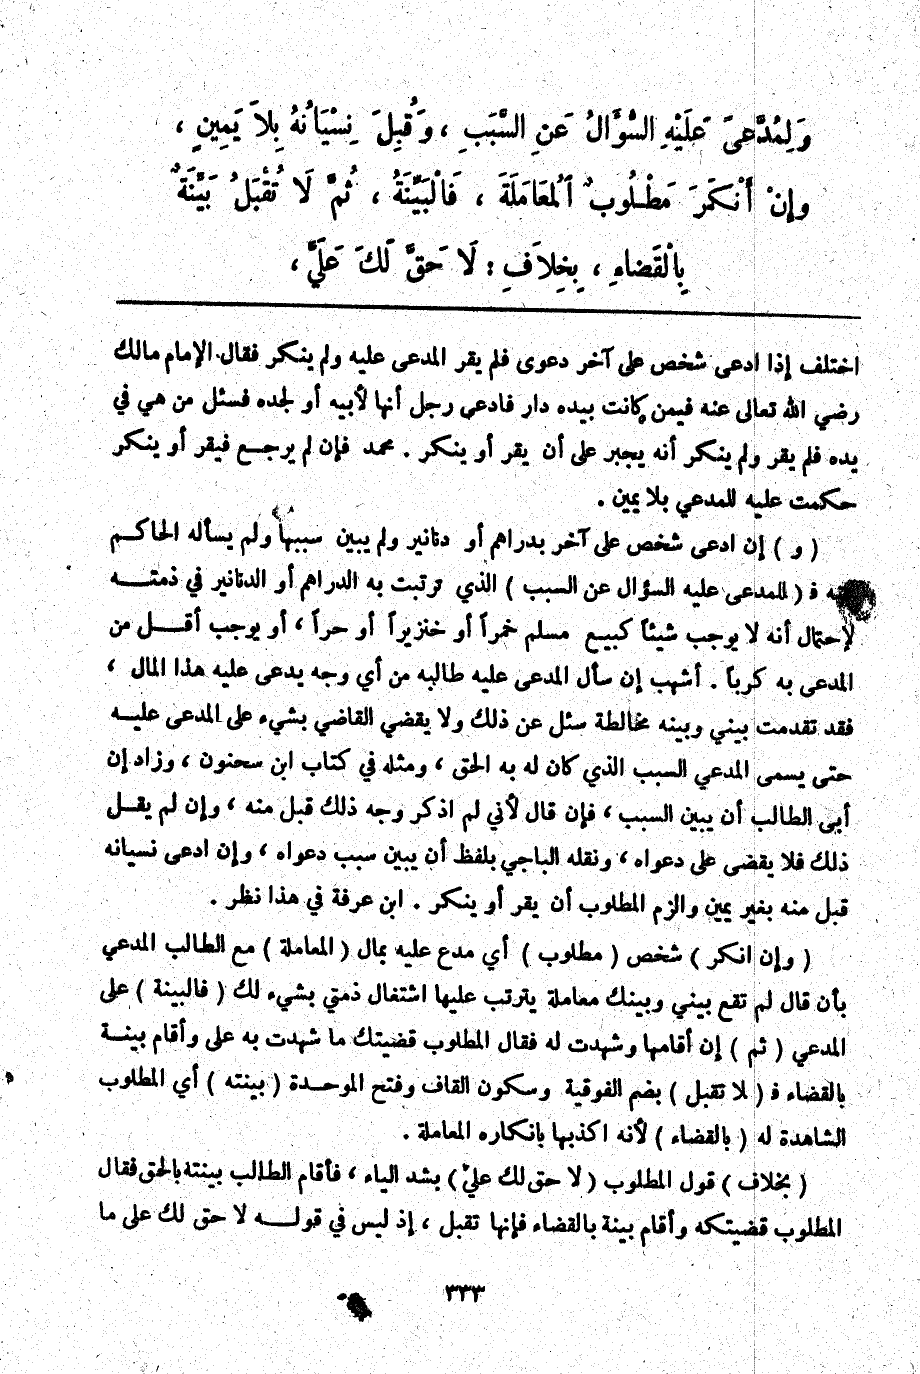 وَلِمُدَّعىً عَلَيْهِ السُّؤَالُ عَنِ السَّبَبِ ، وَقُبِلَ نِسْيَانُهُ بِلاَ يَمِينٍ ،
وإنْ أَنْكَرَ مَطْلُوبٌ ٱلْمُعَامَلَةَ ، فَالْبَيِّنَةُ ، ثُمَّ لَا تُقْبَلُ بَيَّنَةٌ
بِالْقَضاءِ ، بِخِلاَفِ : لَا حَقَّ لَكَ عَلَيَّ ،
اختلف إذا ادعى شخص على آخر دعوى فلم يقر المدعى عليه ولم ينكر فقال الإمام مالك
رضي الله تعالى عنه فيمن كانت بيده دار فادعى رجل أنها لأبيه أو لجده فسئل من هي في
يده فلم يقر ولم ينكر أنه يجبر على أن يقر أو ينكر . محمد فإن لم يرجع فيقر أو ينكر
حكمت عليه للمدعي بلا يمين .
( و ) إن ادعى شخص على آخر بدراهم أو دنانير ولم يبين سببها ولم يسأله الحاكم
فـ ( للمدعى عليه السؤال عن السبب ) الذي ترتبت به الدراهم أو الدنانير في ذمته
لإحتمال أنه لا يوجب شيئاً كبيع مسلم خمراً أو خنزيراً أو حراً ، أو يوجب أقل من
المدعى به كرباً . أشهب إن سأل المدعى عليه طالبه من أي وجه يدعى عليه هذا المال ،
فقد تقدمت بيني وبينه مخالطة سئل عن ذلك ولا يقضي القاضي بشيء على المدعى عليه
حتى يسمى المدعي السبب الذي كان له به الحق ، ومثله في كتاب ابن سحنون ، وزاد إن
أبى الطالب أن يبين السبب ، فإن قال لأني لم اذكر وجه ذلك قبل منه ، وإن لم يقل
ذلك فلا يقضى على دعواه ، ونقله الباجي بلفظ أن يبين سبب دعواه ، وإن ادعى نسيانه
قبل منه بغير يمين والزم المطلوب أن يقر أو ينكر . ابن عرفة في هذا نظر .
( وإن انكر ) شخص ( مطلوب ) أي مدع عليه بمال ( المعاملة ) مع الطالب المدعي
بأن قال لم تقع بيني وبينك معاملة يترتب عليها اشتغال ذمتي بشيء لك ( فالبينة ) على
المدعي ( ثم ) إن أقامها وشهدت له فقال المطلوب قضيتك ما شهدت به على وأقام بينة
بالقضاء فـ ( لا تقبل ) بضم الفوقية وسكون القاف وفتح الموحدة ( بينته ) أي المطلوب
الشاهدة له ( بالقضاء ) لأنه اكذبها بإنكاره المعاملة .
( بخلاف ) قول المطلوب ( لا حق لك عليّ ) بشد الياء ، فأقام الطالب بينته بالحق فقال
المطلوب قضيتكه وأقام بينة بالقضاء فإنها تقبل ، إذ ليس في قوله لا حق لك على ما
٣٣٣